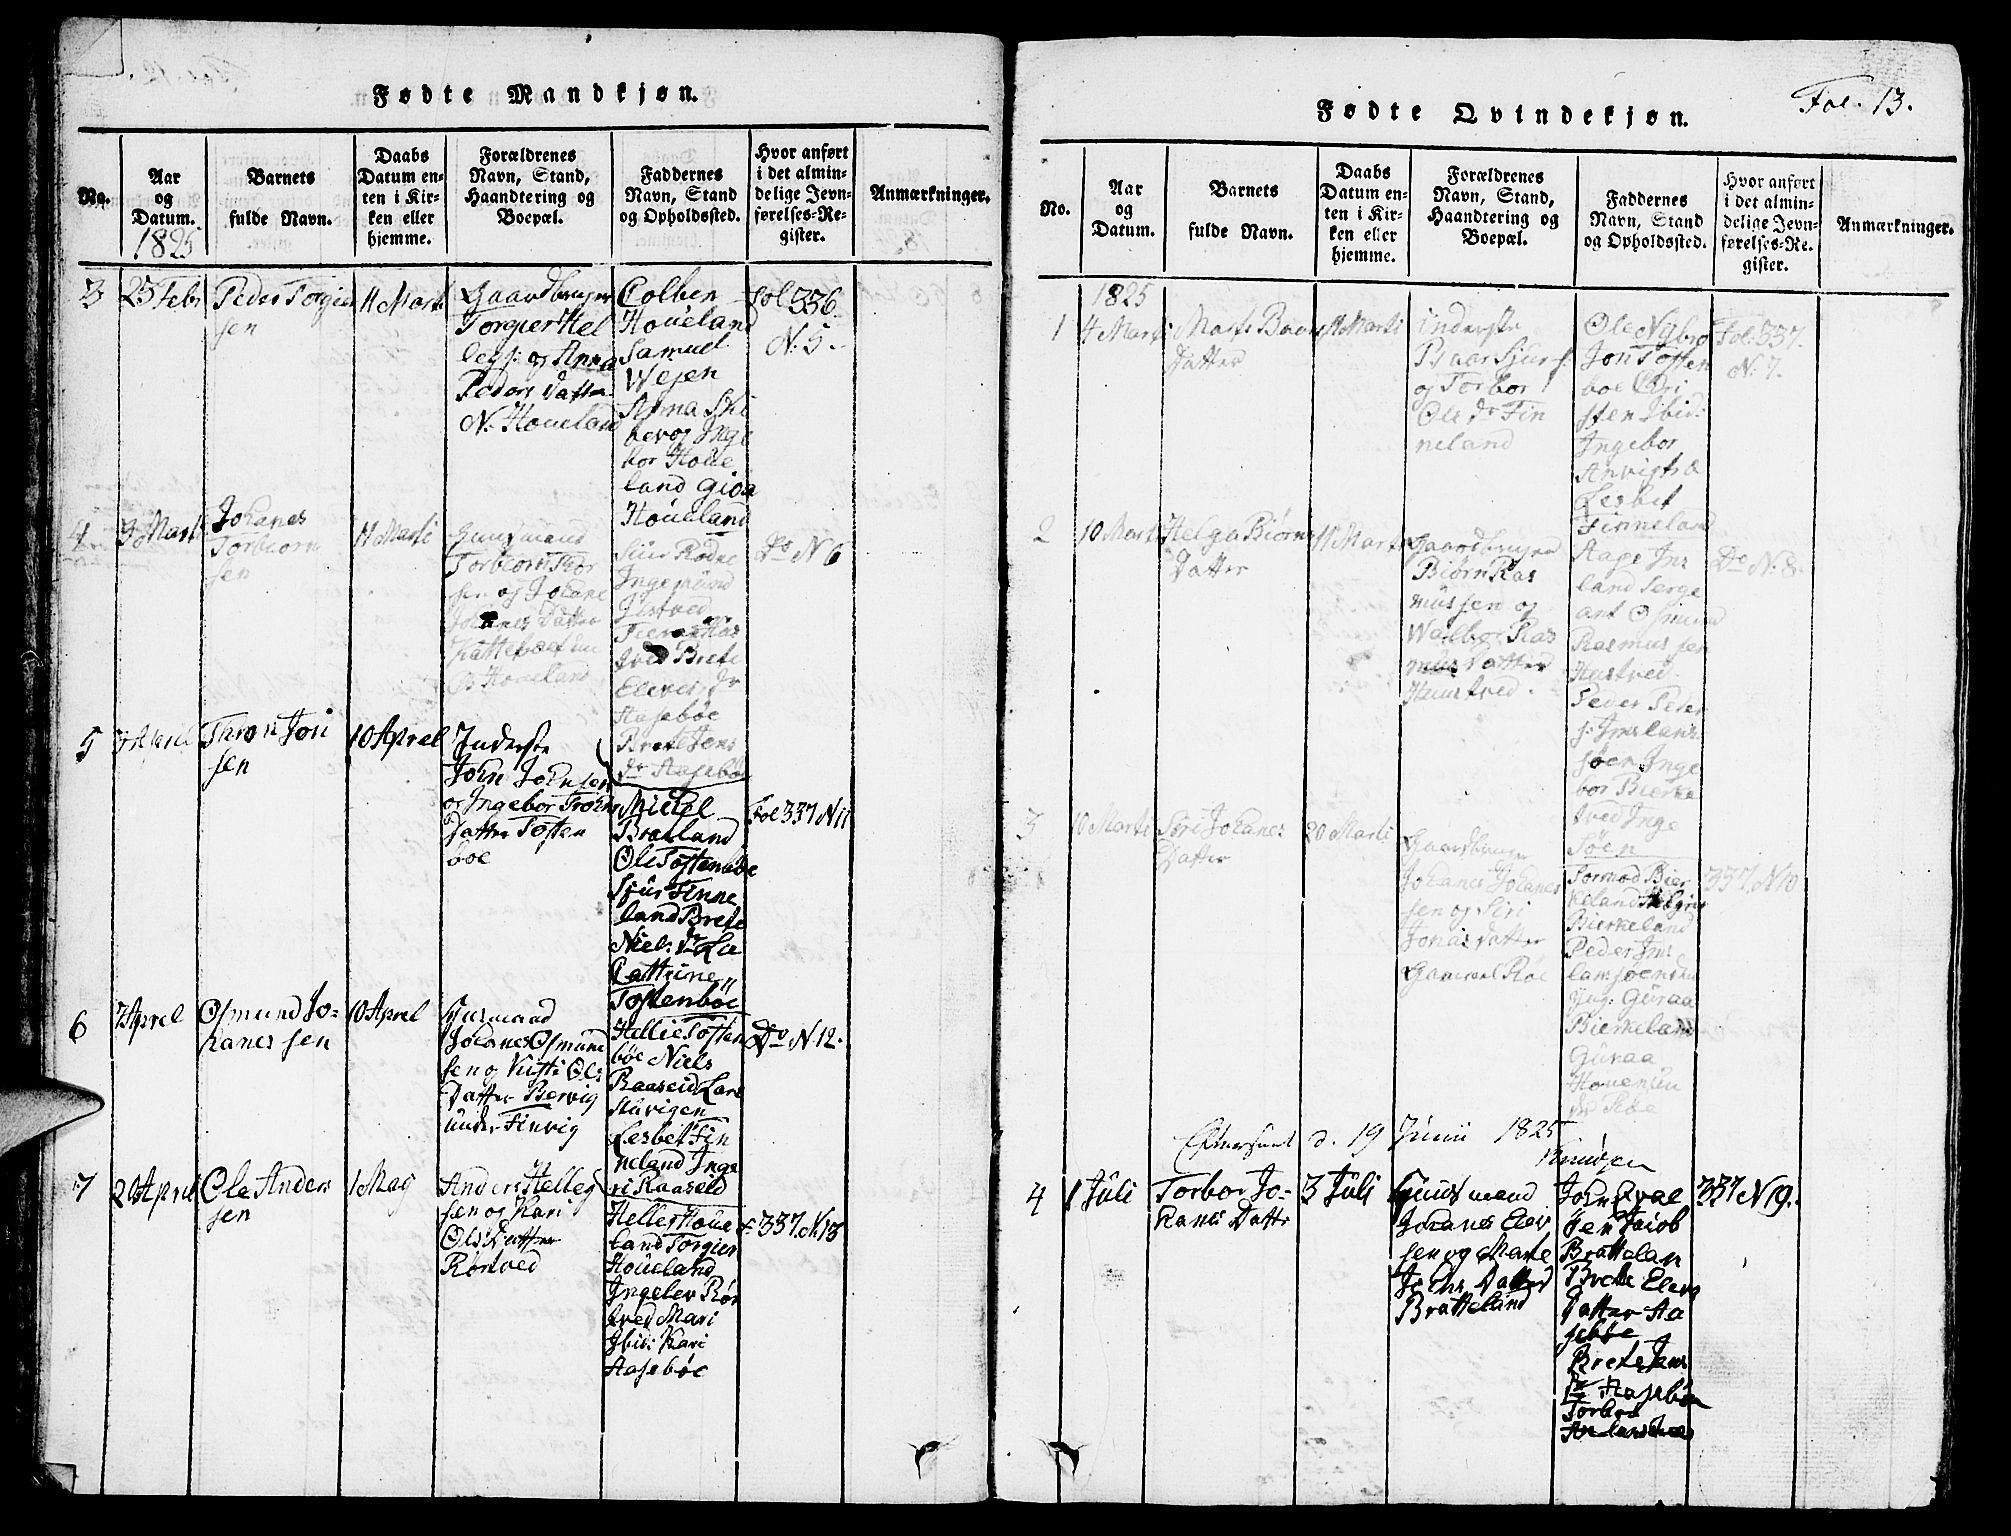 Fødte Mandkjøn.
No.
Aar
og
Datum.
1825
Barnets
fulde Navn.
Daabs
Datum en-
ten i Kir-
ken eller
hjemme.
Forældrenes
Navn, Stand,
Haandtering og
Boepæl.
Faddernes
Navn, Stand
og Opholdssted.
Hvor anført
i det almin-
delige Jevn-
førelses-Re-
gister.
Anmærkninger.
3
25 Febr
Peder Torgier
sen
11 Marti
Gaardbruger
Torgier Hel
legs: og Anna
Peders Datter
N. Houeland
Colben
Houeland
Samuel
Wejen
Anna Ski
bevog Inge
bor Houe
land Gioa
Houeland
Fol 336.
N. 5.
4
9 Marti
Johanes
Torbiorn
sen
11 Marti
Huusmand
Torbiorn Thor
sen og Johane
Johanes Datter
Houeland
Siur Rødne
Ingemund
Brete
Elevs dr
Aasebøe
Brete Jens
dr Aasebø
Do N 6
5
3 Aprel
Thron Jon
sen
10 Aprel
Inderste
John Johnsen
og Ingebor Trohns
Datter Tosten
boe
Michel
Braeland
Ole Tostensbøe
Sjur Finne
land Brete
Niels dr Lu
Cattrine
Tostenbøe
Fol 337 N 11
6
7 Aprel
Osmund Jo-
hanes sen
10 Aprel
Huusmand
Johanes Osmund
sen og Kristi Ols
Datter Bervig
under Finvig
Hellie Tosten
bøe Niels
Raaseid Lars
Stuvigen
Lesbet Fin
neland Inge
ri Raaseid
Do N. 12.
7
20 Aprel
Ole Anders
sen
1 May
Anders Helleg
sen og Kari
Ols Datter
Rørtved
Helle Houe
land Torgier
Houeland
Ingelev Rør
tved Mari
Ibid: Kari
Aasebøe
F. 337. N. 13
Fol. 13.
Fødte Qvindekjøn.
No.
Aar
og
Datum.
Barnets
fulde Navn.
Daabs
Datum en-
ten i Kir-
ken eller
hjemme.
Forældrenes
Navn, Stand,
Haandtering og
Boepæl.
Faddernes
Navn, Stand
og Opholdssted.
Hvor anført
i det almin-
delige Jevn-
førelses-Re-
gister.
Anmærkninger.
1825
1
4 Marti
Marte Baars
Datter
11 Marti
Inderste
Baar Sjurs:
og Torbor
Ols dr Fin
neland
Ole Nybro
Jon Tosten
boe Chri
sten Ibid:
Ingebor
Lesbet
Finneland
Fol: 337.
N: 7.
2
10 Marti
Helga Biørns
Datter
11 Marti
Gaardbruger
Biørn Ras
mussen og
Walbor Ras
mus Datter
Huustved.
Aage Ims
land
Osmund
Rasmus sen
Hustved.
Peder Peder
s: Imslans
søen Inge
bor Bierke
tved Inge
Søen
Do N: 8.
3
10 Marti
Siri Johanes
Datter
20 Marti
Gaardbruger
Johanes Johanes
sen og Siri
Jonas Datter
Gammel Røe
Tormod Bier
keland
Bierkeland
Peder Ims
lansøen
Guraa
Bierkeland
Guraa
337. N 10
Eftersuet d. 19 Junii 1825
Knudsen
4
1 Juli
Torbor Jo-
hanes Datter
3 Juli
Huusmand
Johanes Elev
sen og Marte
Johns Datter
Bratteland
Jacob
Brattelan
Brete Elevs
Datter Aa
sebøe
Brete Jens
Dr Aasebøe
Torbor
337 N 19.